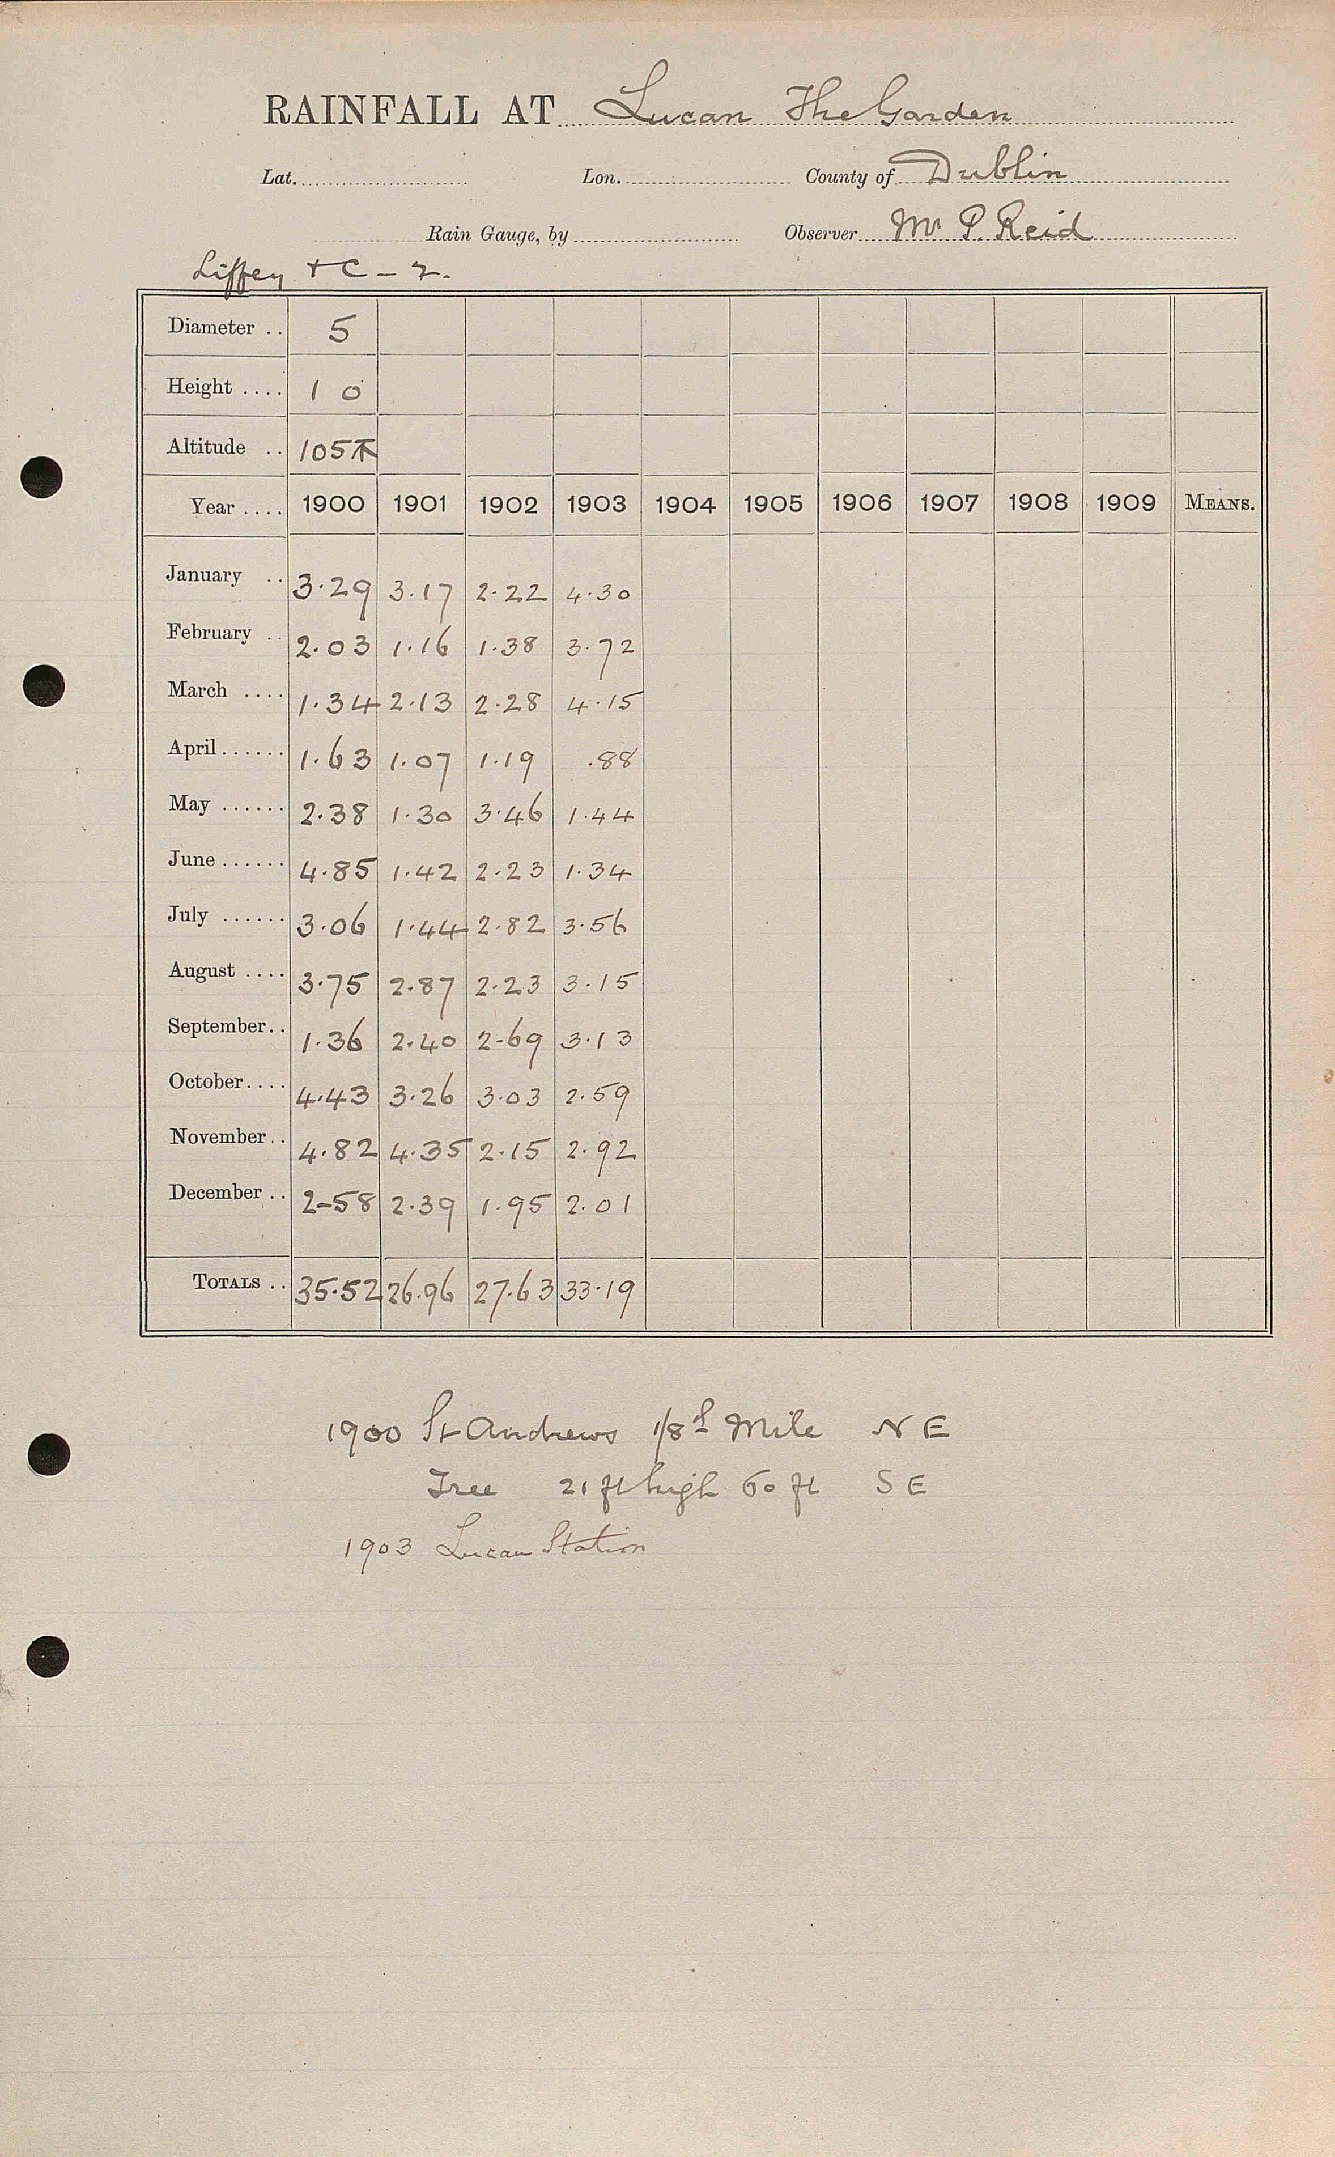 RAINFALL AT Lucan The Garden
Lat. Lon. County of Dublin
Rain Gauge, by Observer Mr P. Reid
Liffey + C – 2.
Diameter .. 5
Height .... 1 0
Altitude .. 105
Year .... 1900 1901 1902 1903 1904 1905 1906 1907 1908 1909 MEANS.
January .. 3.29 3.17 2.22 4.30
February .. 2.03 1.16 1.38 3.72
March .... 1.34 2.13 2.28 4.15
April ...... 1.63 1.07 1.19 .88
May ...... 2.38 1.30 3.46 1.44
June ...... 4.85 1.42 2.23 1.34
July ...... 3.06 1.44 2.82 3.56
August .... 3.75 2.87 2.23 3.15
September.. 1.36 2.40 2.69 3.13
October.... 4.43 3.26 3.03 2.59
November.. 4.82 4.35 2.15 2.92
December .. 2-58 2.39 1.95 2.01
TOTALS .. 35.52 26.96 27.63 33.19
1900 St Andrews 1/8th Mile N E
Tree 21 ft high 60 ft S E
1903 Lucan Station